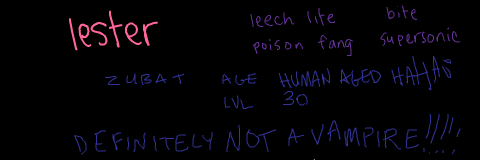 lester
leech life bite
poison fang supersonic
ZUBAT AGE HUMAN AGED HAHAA
LVL 30
DEFINITELY NOT A VAMPIRE!!!!!